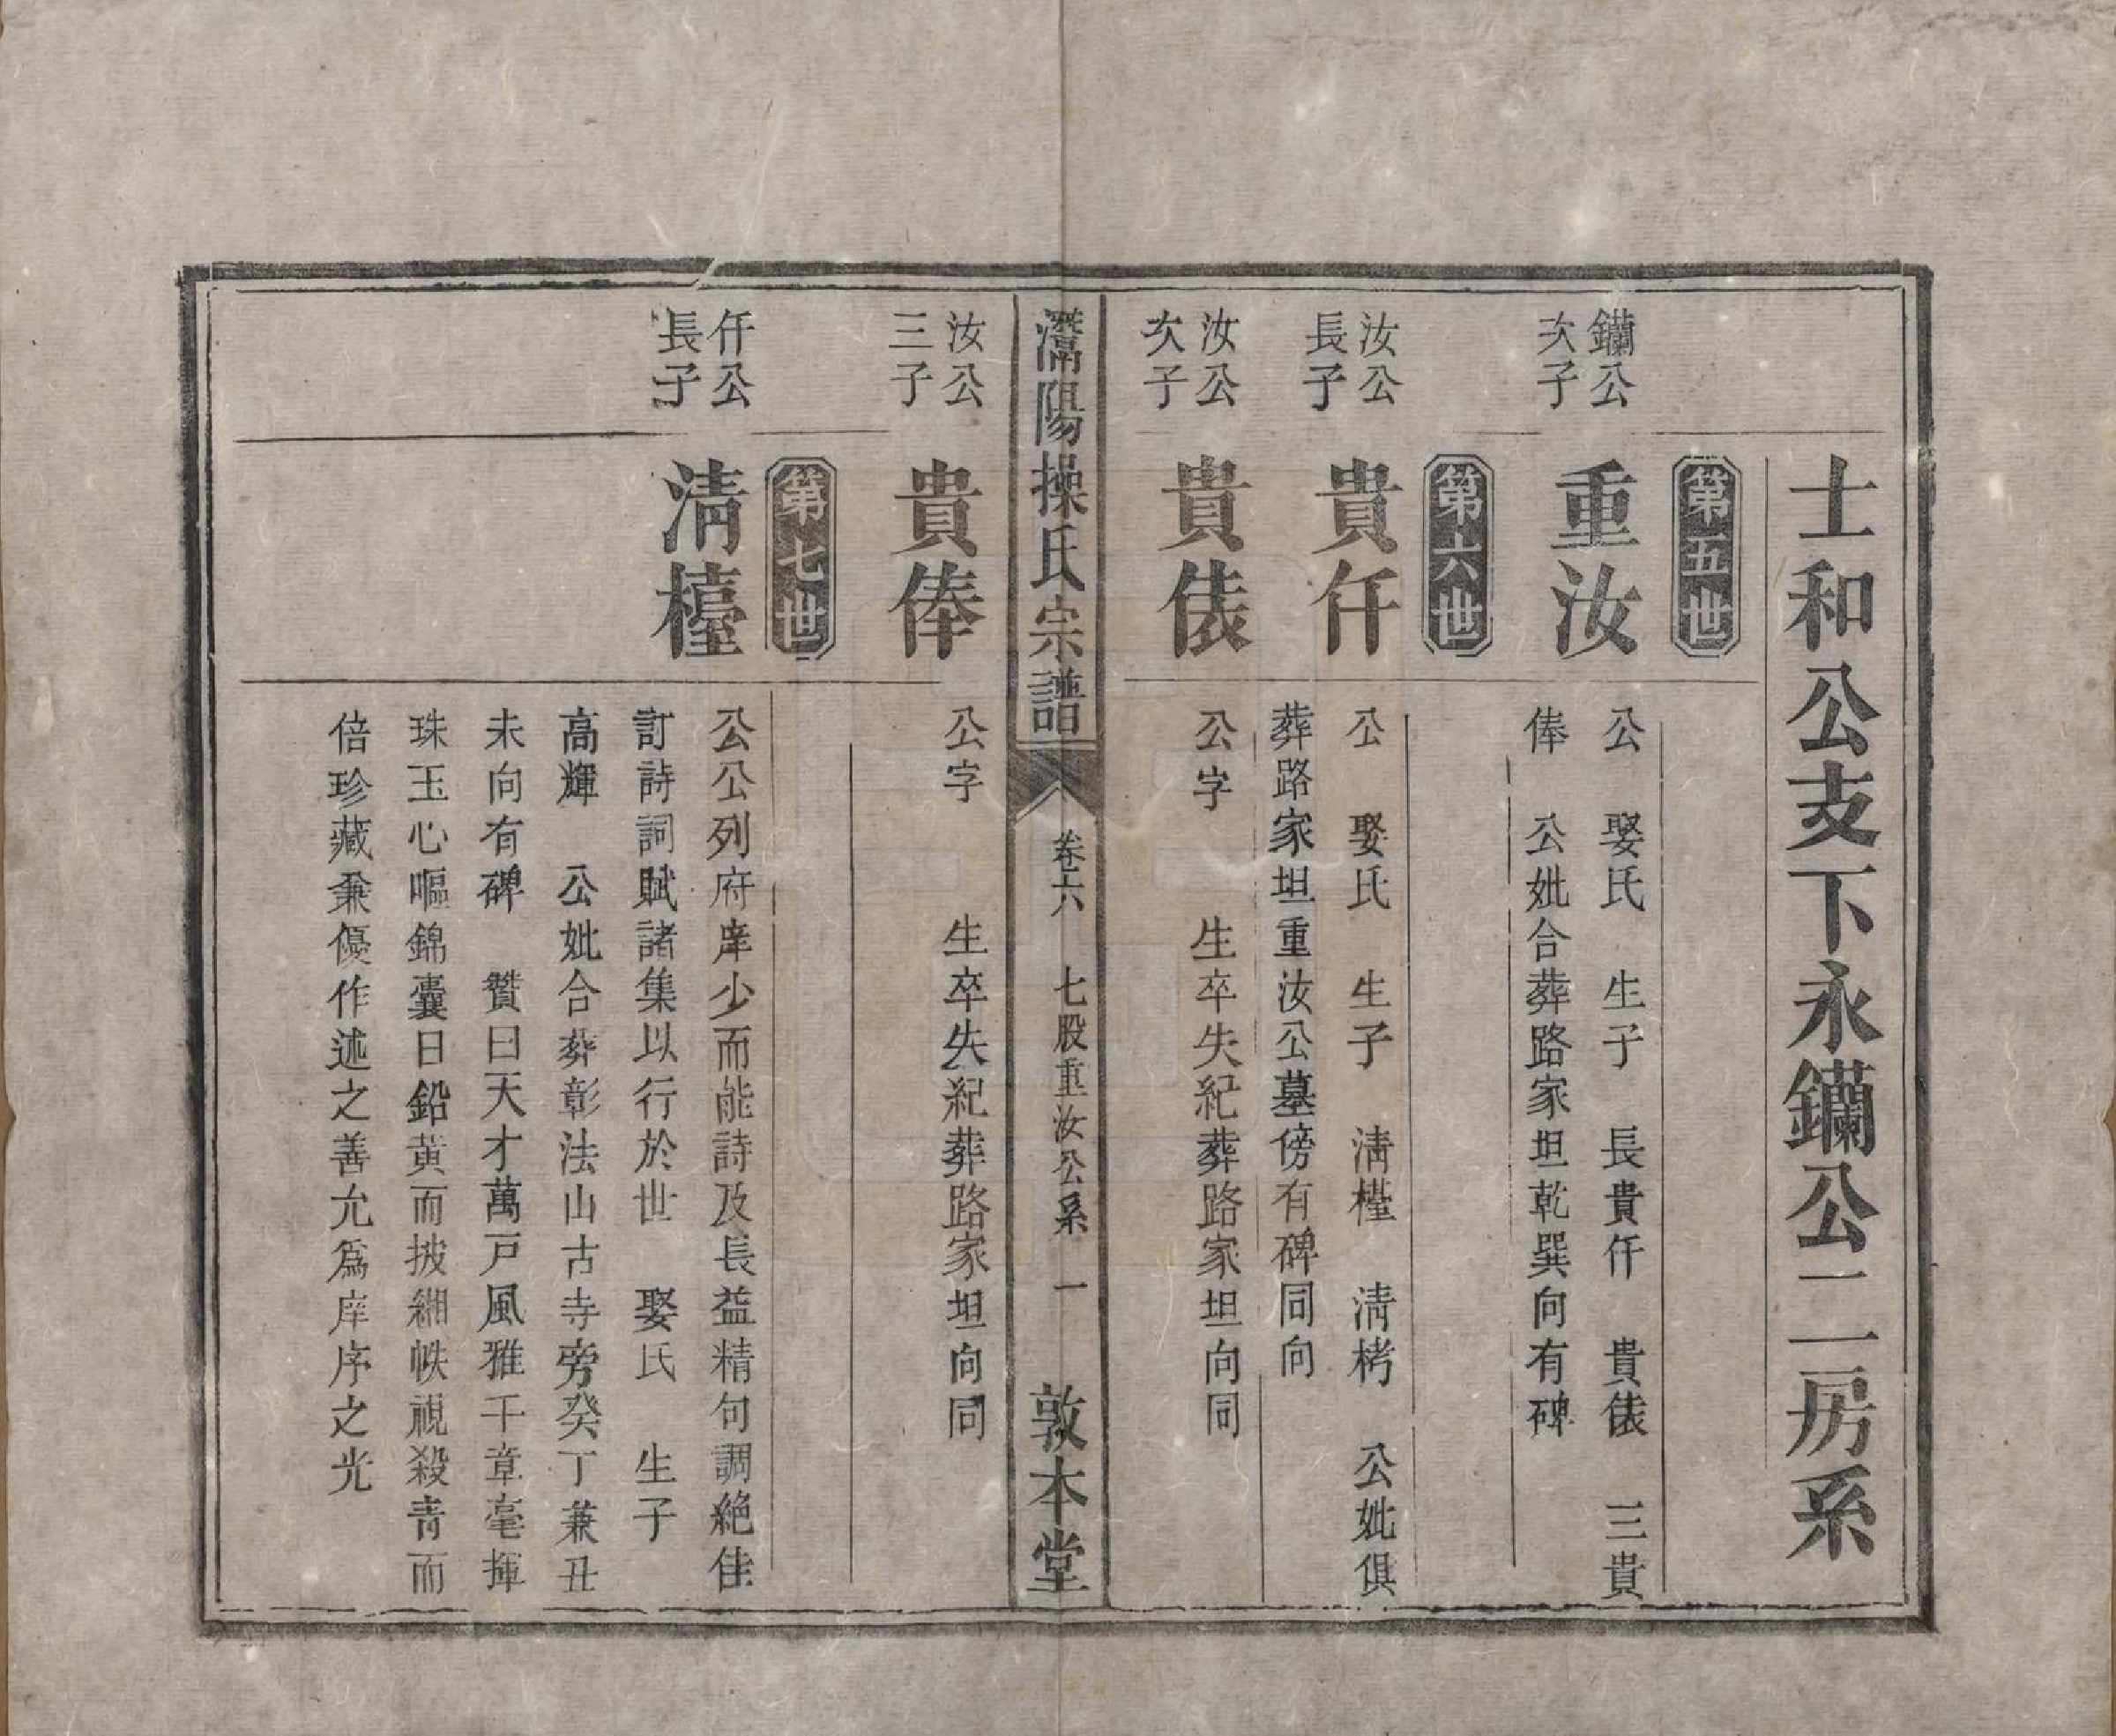 士和公支下永钄公二房系
第五世
钄公
次子
重汝
公 娶氏 生子 長貴仟 貴俵 三貴
俸 公妣合葬路家坦乾巽向有碑
第六世
汝公
長子
貴仟
公 娶氏 生子 淸橀 淸栲 公妣俱
葬路家坦重汝公墓傍有碑同向
汝公
次子
貴俵
公字 生卒失紀葬路家坦向同
陽操氏宗譜
卷六 七股重汝公系 一
敦本堂
汝公
三子
貴俸
公字 生卒失紀葬路家坦向同
第七世
仟公
長子
淸㙜
公公列府庠少而能詩及長益精句調絕佳
訂詩詞賦諸集以行於世 娶氏 生子
高輝 公妣合葬彰法山古寺旁癸丁兼丑
未向有碑 贊曰天才萬戸風雅千章毫揮
珠玉心嘔錦囊日鉛黄而披緗帙視殺靑而
倍珍藏兼優作述之善允爲庠序之光